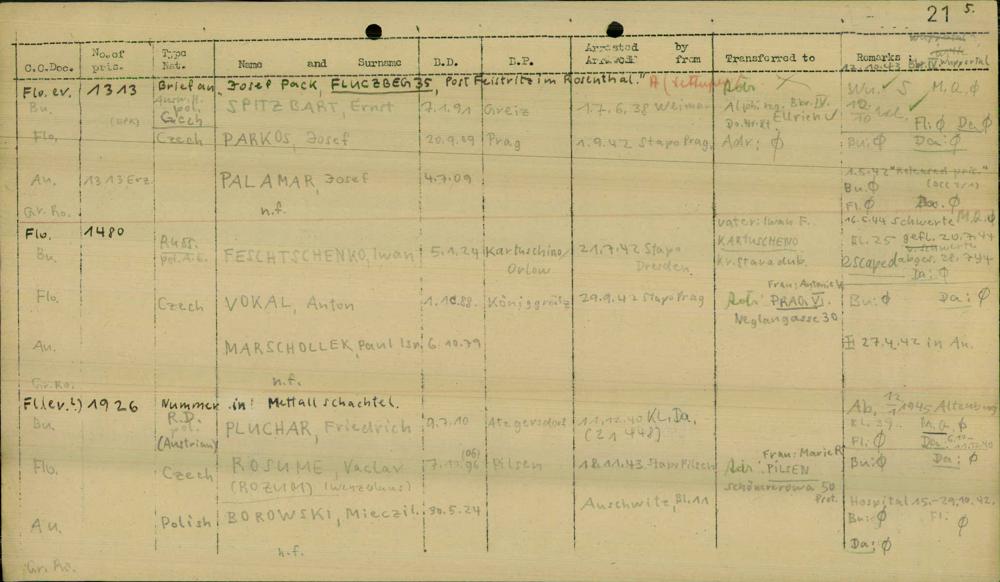 21 5.
Wuppertal
No. of pris. Type Nat. Arrested by
C.C.Doc. Name and Surname D.D. D.P. from Transferred to Remarks
12.10.43 Bkr. IV Wuppertal
Flo. ev. 1313 Brief an "Josef Pack, FLUCZBEG 35, Post Feistritz im Rosenthal." A
Bu. pol. Czech SPITZBART, Ernst 7.1.91 Greiz 17.6.38 Weimar Ellrich Wu. S M.Q. Ø
Fl: Ø Da Ø
Flo. Czech PARKOS, Josef 20.9.09 Prag 1.9.42 Stapo Prag. Adr: Ø Bu: Ø Da: Ø
Au. 1313 Erz. PALAMAR, Josef 4.7.09 1.5.42 "Released pris."
Bu. Ø
Gr. Ro. n.f. Fl. Ø Da. Ø
Flo. 1480 Vater: Iwan F. 16.5.44 Schwerte M.Q. Ø
Bu. Russ. FESCHTSCHENKO, Iwan 5.1.24 Kartuschino/ Orlow 21.7.42 Stapo Dresden. KARTUSCHENO Kr. Staradub. gefl. 20.7.44
escaped abges. 28.7.44
Da: Ø
Flo. Czech VOKAL, Anton 1.10.88. Königgrätz 29.9.42 Stapo Prag Frau: Antonie V. Adr: PRAG VI. Neglangasse 30 Bu: Ø Da: Ø
Au. MARSCHOLLEK, Paul Isr. 6.10.79 27.4.42 in Au.
Gr. Ro. n.f.
Fl(ev.) 1926 Nummer in: Mettallschachtel.
Ab. 12/1 1945 Altenburg
Bu. R.D. pol. (Austrian) PLUCHAR, Friedrich 9.7.10 Atzgersdorf 11.12.40 KL. Da. (21 448) M.Q. Ø
Fl. Ø
Flo. Czech ROSUME, Vaclav 7.12.96 (06) Pilsen 18.11.43 Stapo Pilsen Frau: Marie R. Adr: PILSEN Schömererowa 50 Prot. Bu: Ø Da: Ø
(ROZUM) (Wenzelaus)
Au. Polish BOROWSKI, Mieczil. 30.5.24 Auschwitz, Bl. 11 Hospital 15.-29.10.42.
Bu: Ø Fl. Ø
n.f. Da: Ø
Gr. Ro.